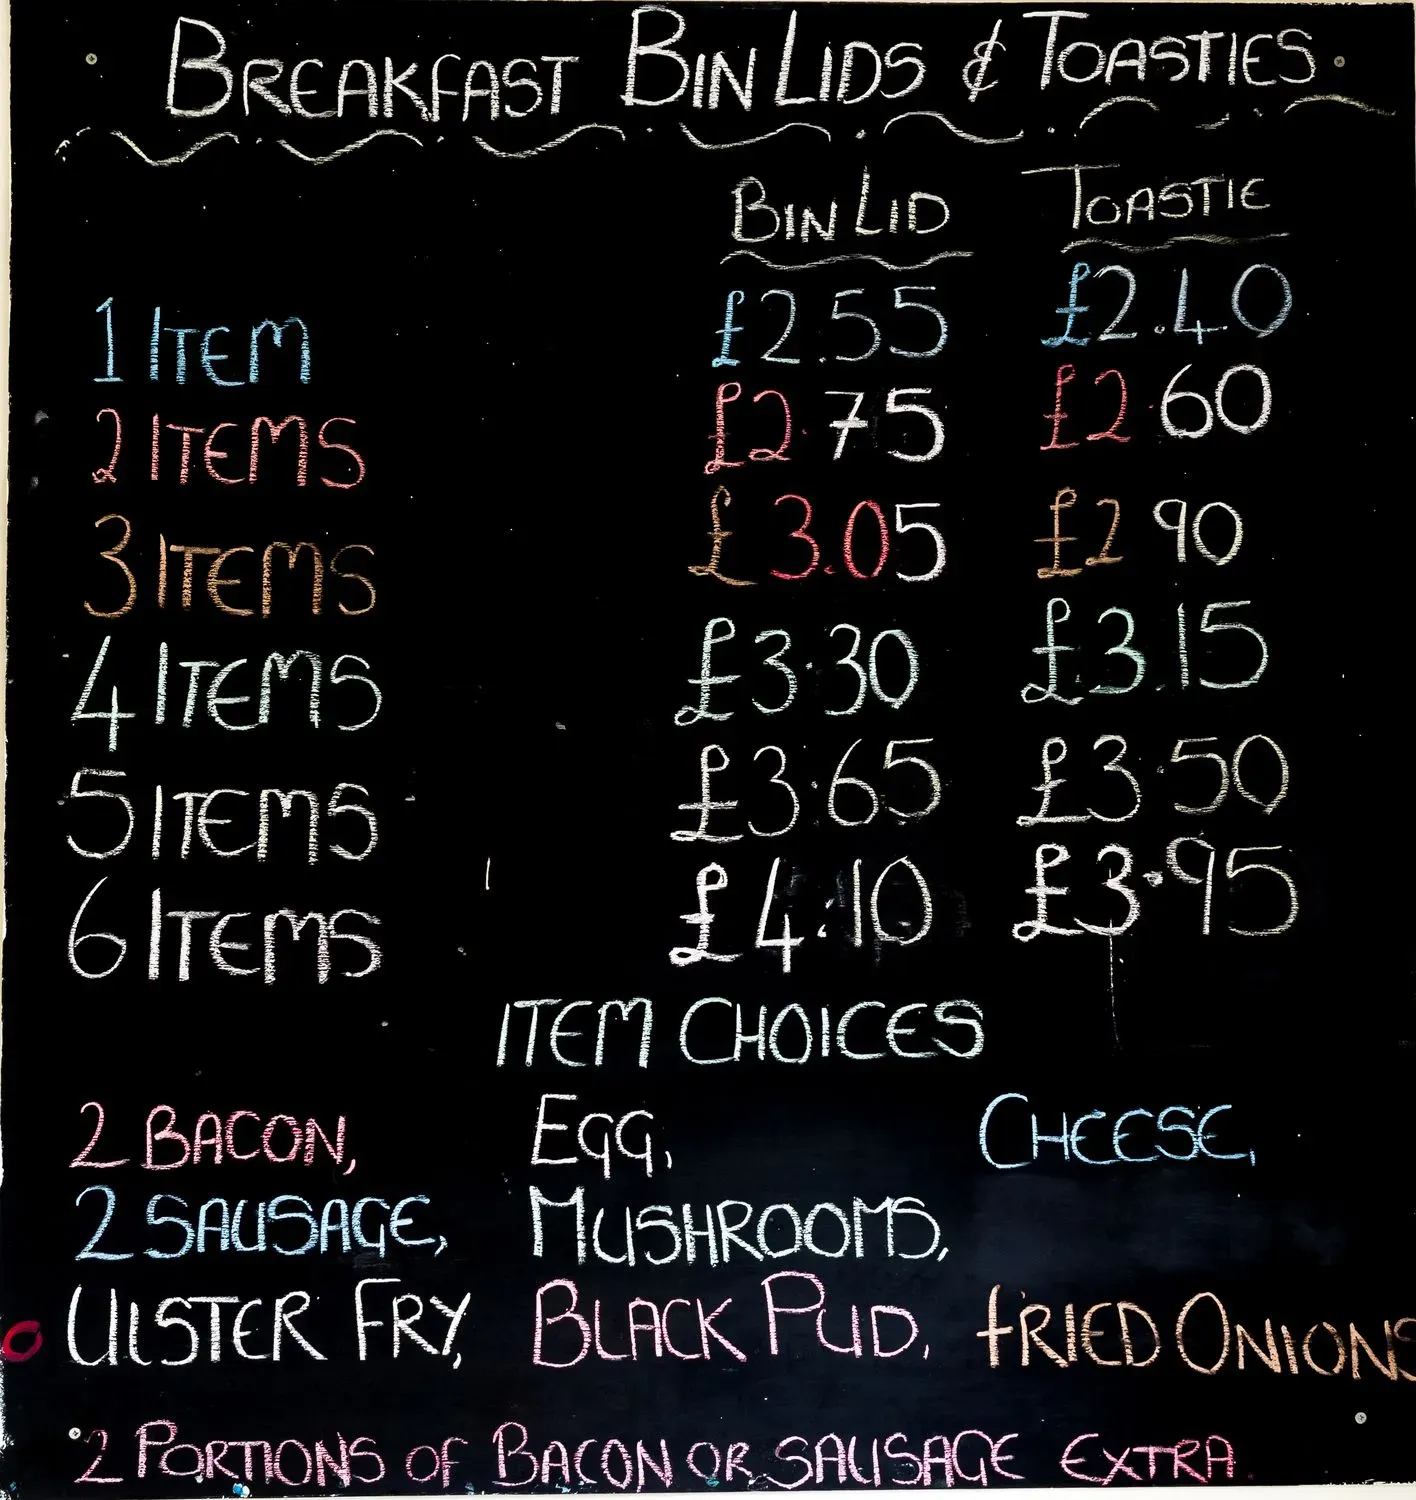 BREAKFAST BIN LIDS & TOASTIES
BIN LID TOASTIE
1 ITEM £2.55 £2.40
2 ITEMS £2.75 £2.60
3 ITEMS £3.05 £2.90
4 ITEMS £3.30 £3.15
5 ITEMS £3.65 £3.50
6 ITEMS £4.10 £3.95
ITEM CHOICES
2 BACON, EGG, CHEESE,
2 SAUSAGE, MUSHROOMS,
ULSTER FRY, BLACK PUD, FRIED ONIONS
2 PORTIONS OF BACON OR SAUSAGE EXTRA.